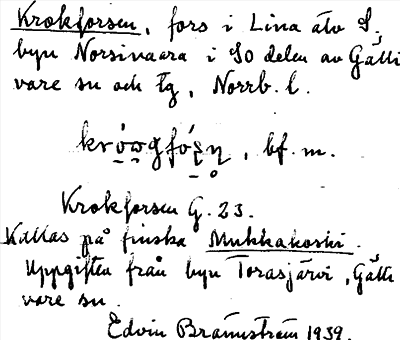 Krokforsen, fors i Lina älv S.
byn Norsivaara i SO delen av Gälli
vare sn och tg, Norrb. l.
bf. m.
Krokforsen G. 23.
Kallas på finska Mukkakoski.
Uppgiften från byn Torasjärvi, Gälli
vare sn.
Edvin Brännström 1939.